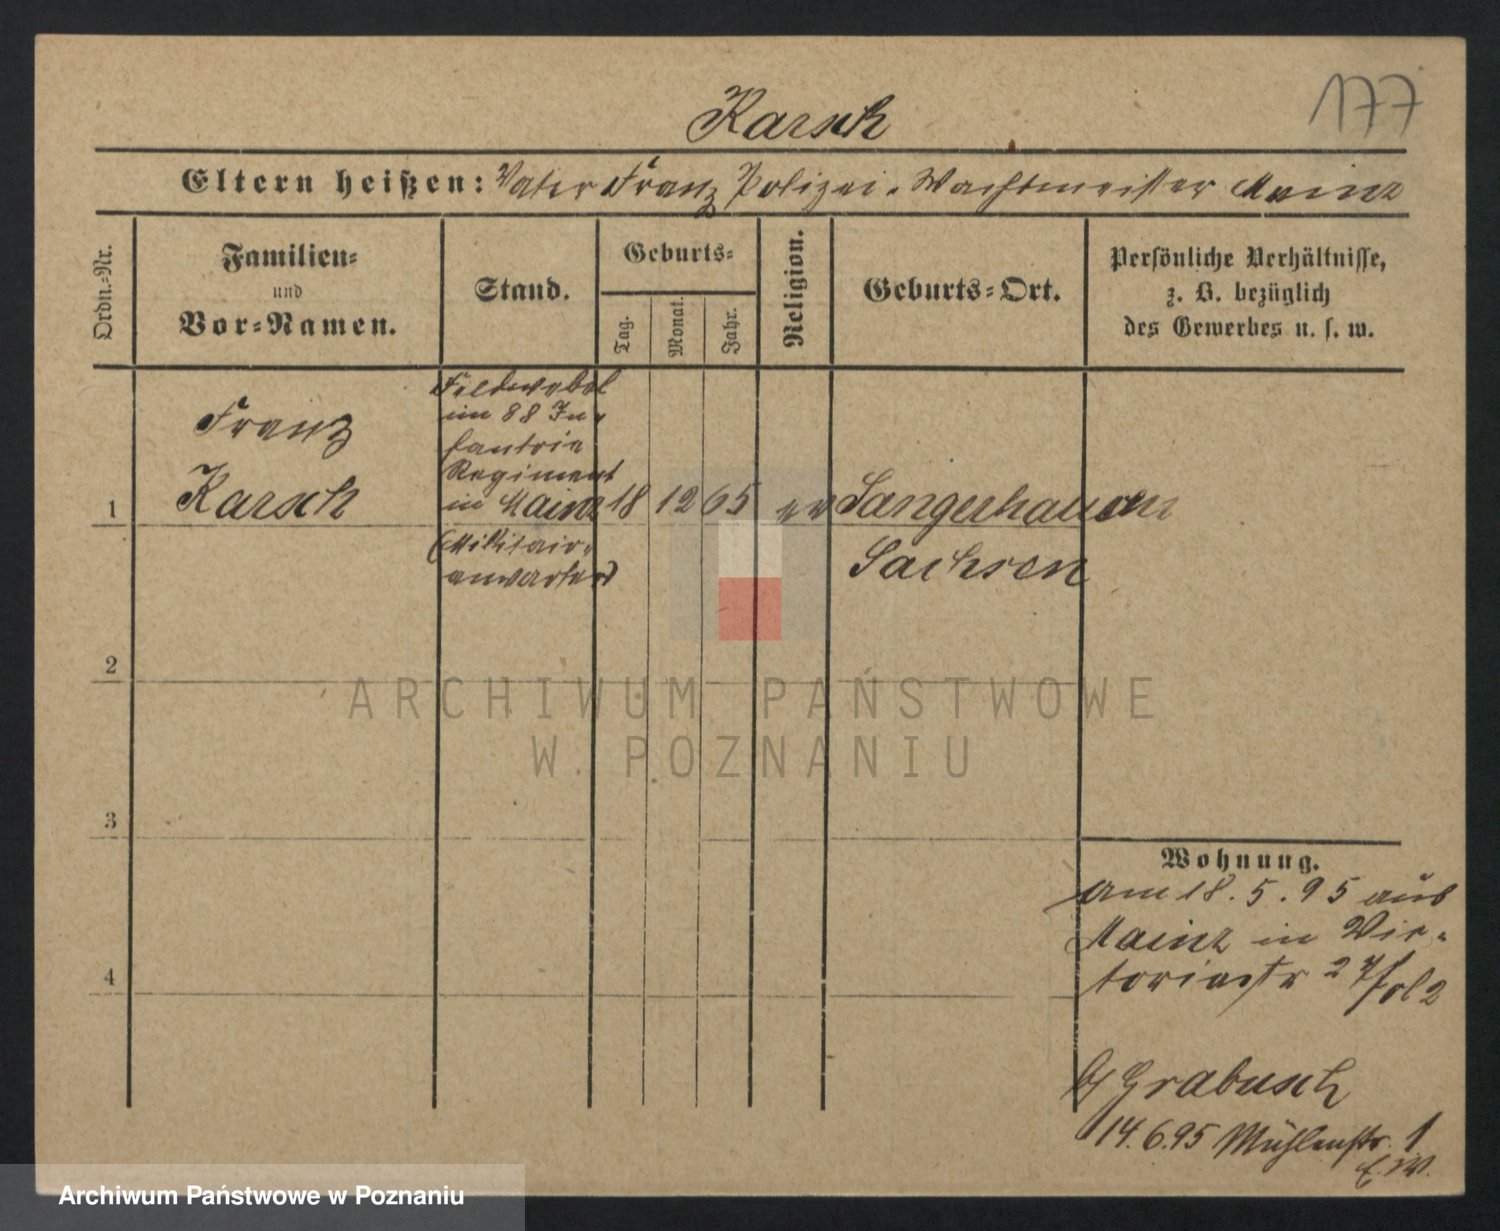 177
Karsch
Eltern heißen: Vater Franz Polizei-Wachtmeister Mainz
Ordn.-Nr.
Familien-
und
Vor-Namen.
Stand.
Geburts-
Tag.
Monat.
Jahr.
Religion.
Geburts-Ort.
Persönliche Verhältnisse,
z. B. bezüglich
des Gewerbes u. s. w.
1
Franz
Karsch
Feldwebel
im 88 In-
fantrie
Regiment
in Mainz
(Militair-
anwarter)
18
12
65
ev
Sangerhausen
Sachsen
2
3
4
Wohnung.
am 18.5.95 aus
Mainz in Vic-
toriastr 27
b/ Grabusch
14.6.95 Mühlenstr. 1
ARCHIWUM PAŃSTWOWE
W POZNANIU
Archiwum Państwowe w Poznaniu